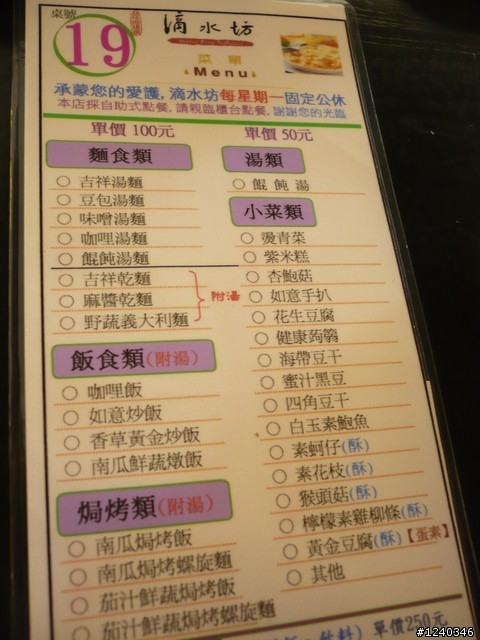 桌號
19
滴水坊
菜單
Menu
承蒙您的愛護, 滴水坊每星期一固定公休
本店採自助式點餐, 請親臨櫃台點餐, 謝謝您的光臨
單價 100元
麵食類
○ 吉祥湯麵
○ 豆包湯麵
○ 味噌湯麵
○ 咖哩湯麵
○ 餛飩湯麵
○ 吉祥乾麵
○ 麻醬乾麵
○ 野蔬義大利麵
附湯
飯食類(附湯)
○ 咖哩飯
○ 如意炒飯
○ 香草黃金炒飯
○ 南瓜鮮蔬燉飯
焗烤類(附湯)
○ 南瓜焗烤飯
○ 南瓜焗烤螺旋麵
○ 茄汁鮮蔬焗烤飯
茄汁鮮蔬焗烤螺旋麵
單價 50元
湯類
○ 餛飩湯
小菜類
○ 燙青菜
○ 紫米糕
○ 杏鮑菇
○ 如意手扒
○ 花生豆腐
○ 健康蒟蒻
○ 海帶豆干
○ 蜜汁黑豆
○ 四角豆干
○ 白玉素鮑魚
○ 素蚵仔(酥)
○ 素花枝(酥)
○ 猴頭菇(酥)
○ 檸檬素雞柳條(酥)
○ 黃金豆腐(酥)【蛋素】
○ 其他
單價250元
#1240346